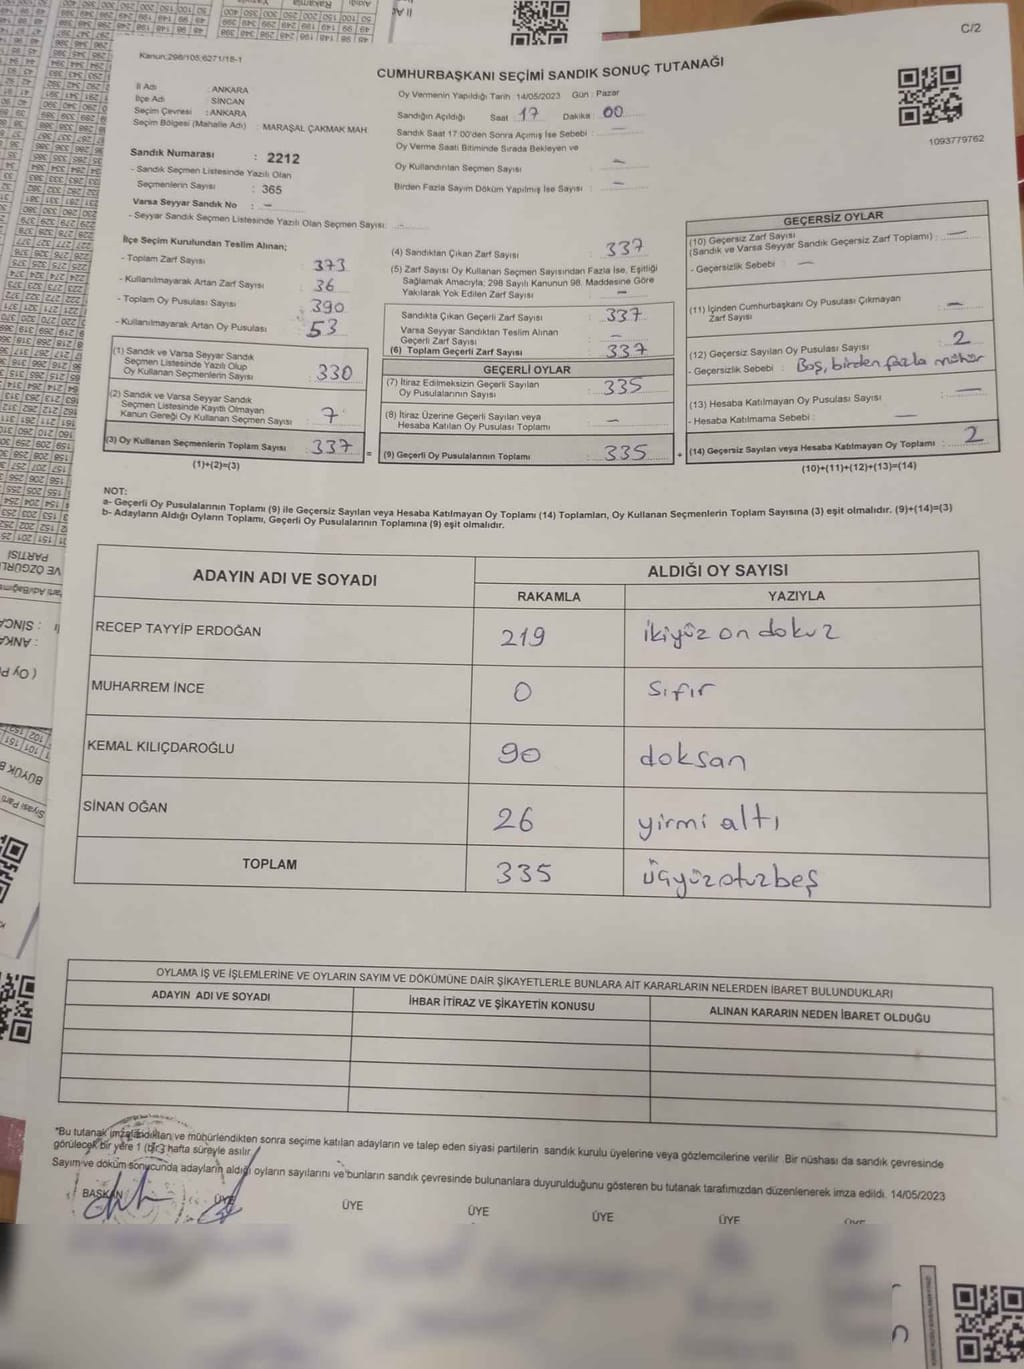 C/2
Kanun:298/105,6271/18-1
CUMHURBAŞKANI SEÇİMİ SANDIK SONUÇ TUTANAĞI
İl Adı : ANKARA
İlçe Adı : SİNCAN
Seçim Çevresi : ANKARA
Seçim Bölgesi (Mahalle Adı) : MARAŞAL ÇAKMAK MAH
Sandık Numarası : 2212
- Sandık Seçmen Listesinde Yazılı Olan
Seçmenlerin Sayısı : 365
Varsa Seyyar Sandık No : –
- Seyyar Sandık Seçmen Listesinde Yazılı Olan Seçmen Sayısı : –
Oy Vermenin Yapıldığı Tarih :14/05/2023 Gün : Pazar
Sandığın Açıldığı Saat : 17 Dakika : 00
Sandık Saat 17:00'den Sonra Açımış İse Sebebi : –
Oy Verme Saati Bitiminde Sırada Bekleyen ve
Oy Kullandırılan Seçmen Sayısı : –
Birden Fazla Sayım Döküm Yapılmış İse Sayısı : –
1093779762
İlçe Seçim Kurulundan Teslim Alınan;
- Toplam Zarf Sayısı : 373
- Kullanılmayarak Artan Zarf Sayısı : 36
- Toplam Oy Pusulası Sayısı : 390
- Kullanılmayarak Artan Oy Pusulası : 53
(1) Sandık ve Varsa Seyyar Sandık
Seçmen Listesinde Yazılı Olup
Oy Kullanan Seçmenlerin Sayısı : 330
(2) Sandık ve Varsa Seyyar Sandık
Seçmen Listesinde Kayıtlı Olmayan
Kanun Gereği Oy Kullanan Seçmen Sayısı : 7
(3) Oy Kullanan Seçmenlerin Toplam Sayısı : 337
(1)+(2)=(3)
(4) Sandıktan Çıkan Zarf Sayısı : 337
(5) Zarf Sayısı Oy Kullanan Seçmen Sayısından Fazla İse, Eşitliği
Sağlamak Amacıyla; 298 Sayılı Kanunun 98. Maddesine Göre
Yakılarak Yok Edilen Zarf Sayısı : –
Sandıkta Çıkan Geçerli Zarf Sayısı : 337
Varsa Seyyar Sandıktan Teslim Alınan
Geçerli Zarf Sayısı : –
(6) Toplam Geçerli Zarf Sayısı : 337
GEÇERLİ OYLAR
(7) İtiraz Edilmeksizin Geçerli Sayılan
Oy Pusulalarının Sayısı : 335
(8) İtiraz Üzerine Geçerli Sayılan veya
Hesaba Katılan Oy Pusulası Toplamı : –
= (9) Geçerli Oy Pusulalarının Toplamı : 335
GEÇERSİZ OYLAR
(10) Geçersiz Zarf Sayısı
(Sandık ve Varsa Seyyar Sandık Geçersiz Zarf Toplamı) : –
- Geçersizlik Sebebi : –
(11) İçinden Cumhurbaşkanı Oy Pusulası Çıkmayan
Zarf Sayısı : –
(12) Geçersiz Sayılan Oy Pusulası Sayısı : 2
- Geçersizlik Sebebi : Boş, birden fazla mühür
(13) Hesaba Katılmayan Oy Pusulası Sayısı : –
- Hesaba Katılmama Sebebi : –
+ (14) Geçersiz Sayılan veya Hesaba Katılmayan Oy Toplamı : 2
(10)+(11)+(12)+(13)=(14)
NOT:
a- Geçerli Oy Pusulalarının Toplamı (9) ile Geçersiz Sayılan veya Hesaba Katılmayan Oy Toplamı (14) Toplamları, Oy Kullanan Seçmenlerin Toplam Sayısına (3) eşit olmalıdır. (9)+(14)=(3)
b- Adayların Aldığı Oyların Toplamı, Geçerli Oy Pusulalarının Toplamına (9) eşit olmalıdır.
ADAYIN ADI VE SOYADI ALDIĞI OY SAYISI
RAKAMLA YAZIYLA
RECEP TAYYİP ERDOĞAN 219 ikiyüz on dokuz
MUHARREM İNCE 0 Sıfır
KEMAL KILIÇDAROĞLU 90 doksan
SİNAN OĞAN 26 yirmi altı
TOPLAM 335 üçyüzotuzbeş
OYLAMA İŞ VE İŞLEMLERİNE VE OYLARIN SAYIM VE DÖKÜMÜNE DAİR ŞİKAYETLERLE BUNLARA AİT KARARLARIN NELERDEN İBARET BULUNDUKLARI
ADAYIN ADI VE SOYADI İHBAR İTİRAZ VE ŞİKAYETİN KONUSU ALINAN KARARIN NEDEN İBARET OLDUĞU
*Bu tutanak imzalandıktan ve mühürlendikten sonra seçime katılan adayların ve talep eden siyasi partilerin sandık kurulu üyelerine veya gözlemcilerine verilir. Bir nüshası da sandık çevresinde
görülecek bir yere 1 (bir) hafta süreyle asılır.
Sayım ve döküm sonucunda adayların aldığı oyların sayılarını ve bunların sandık çevresinde bulunanlara duyurulduğunu gösteren bu tutanak tarafımızdan düzenlenerek imza edildi. 14/05/2023
BAŞKAN ÜYE ÜYE ÜYE ÜYE ÜYE ÜYE